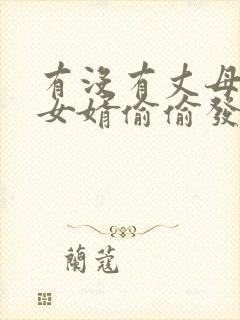 有沒有丈母
女婿偷偷發
蘭蔻